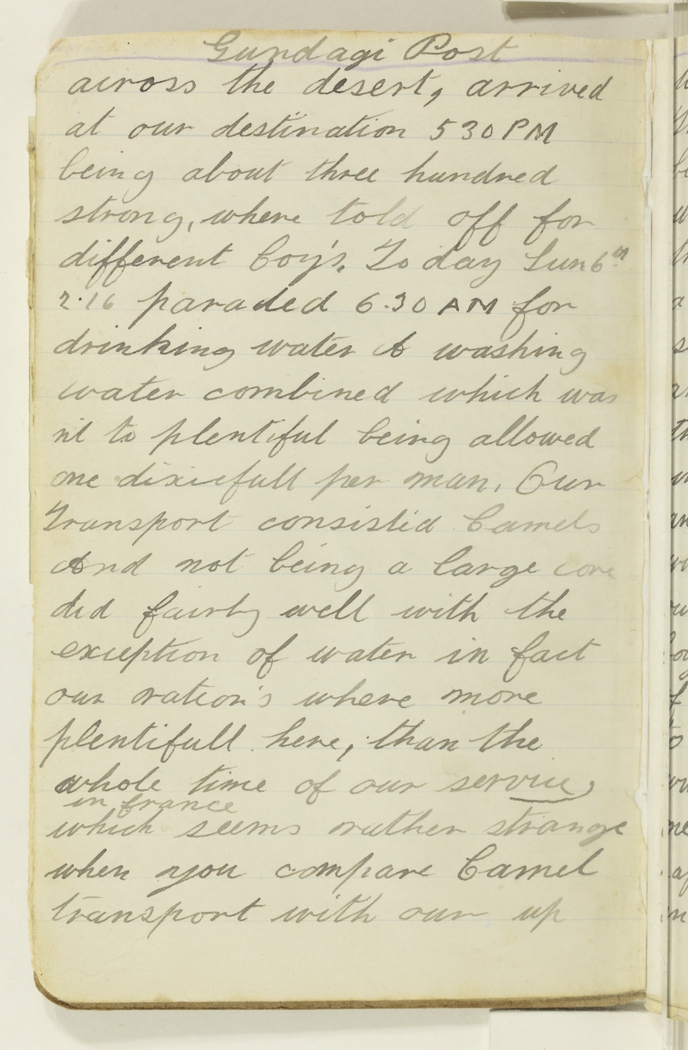 Gundagi Post
across the desert, arrived
at our destination 530 PM
being about three hundred
strong, where told off for
different Coy's. To day Sun 6th
2.16 paraded 6.30 AM for
drinking water & washing
water combined which was
nit to plentiful being allowed
one dixiefull per man. Our
transport consisted Camels
And not being a large
did fairly well with the
exception of water in fact
our ration's where more
plentifull here, than the
whole time of our service
in france
which seems rather strange
when you compare Camel
transport with our up